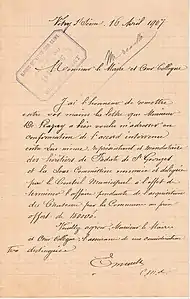 Vitry s/ Seine 16 Avril 1907
Monsieur le Maire et Cher Collègue
J'ai l'honneur de remettre
entre vos mains la lettre que Monsieur
a bien voulu m'adresser en
confirmation de l'accord intervenu
entre lui même, représentant et mandataire
des héritiers de
et la Sous Commission nommée et déléguée
par le Conseil Municipal à l'effet de
terminer l'affaire pendante de l'acquisition
du Château par la Commune au prix
offert de
Veuillez agréer, Monsieur le Maire
et Cher Collègue, l'assurance de ma considération
très distinguée